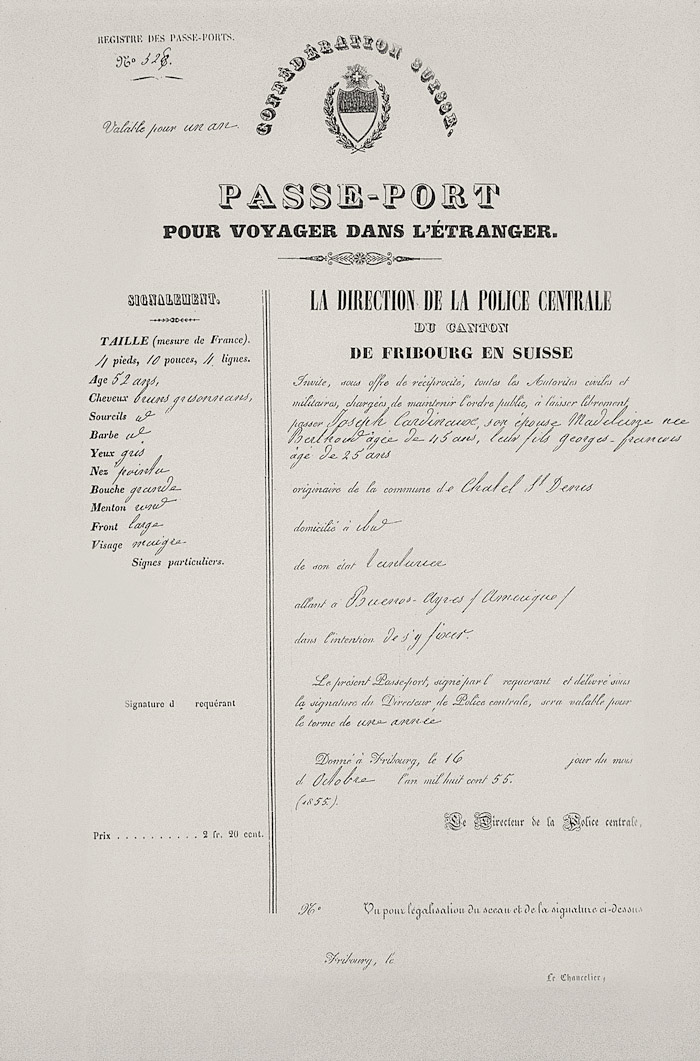 REGISTRE DES PASSE-PORTS.
Nº 328.
Valable pour un an.
CONFÉDÉRATION SUISSE.
PASSE-PORT
POUR VOYAGER DANS L'ÉTRANGER.
SIGNALEMENT.
TAILLE (mesure de France).
4 pieds, 10 pouces, 4 lignes.
Age 52 ans,
Cheveux bruns grisonnans,
Sourcils id
Barbe id
Yeux gris
Nez pointu
Bouche grande
Menton rond
Front large
Visage maigre
Signes particuliers.
Signature d requérant
Prix . . . . . . . . . . 2 fr. 20 cent.
LA DIRECTION DE LA POLICE CENTRALE
DU CANTON
DE FRIBOURG EN SUISSE
Invite, sous offre de réciprocité, toutes les Autorités civiles et
militaires, chargées de maintenir l'ordre public, à laisser librement
passer Joseph Cardineaux, son épouse Madeleine née
Berthoud âgée de 45 ans, leur fils georges-francois
âgé de 25 ans
originaire de la commune de Chatel St Denis
domicilié à
de son état
allant à Buenos-Ayres / Amerique /
dans l'intention de s'y fixer.
Le présent Passeport, signé par l requérant et délivré sous
la signature du Directeur de Police centrale, sera valable pour
le terme de une année
Donné à Fribourg, le 16 jour du mois
d Octobre l'an mil huit cent 55.
(1855).
Le Directeur de la Police centrale,
Nº Vu pour légalisation du sceau et de la signature ci-dessus
Fribourg, le
Le Chancelier,